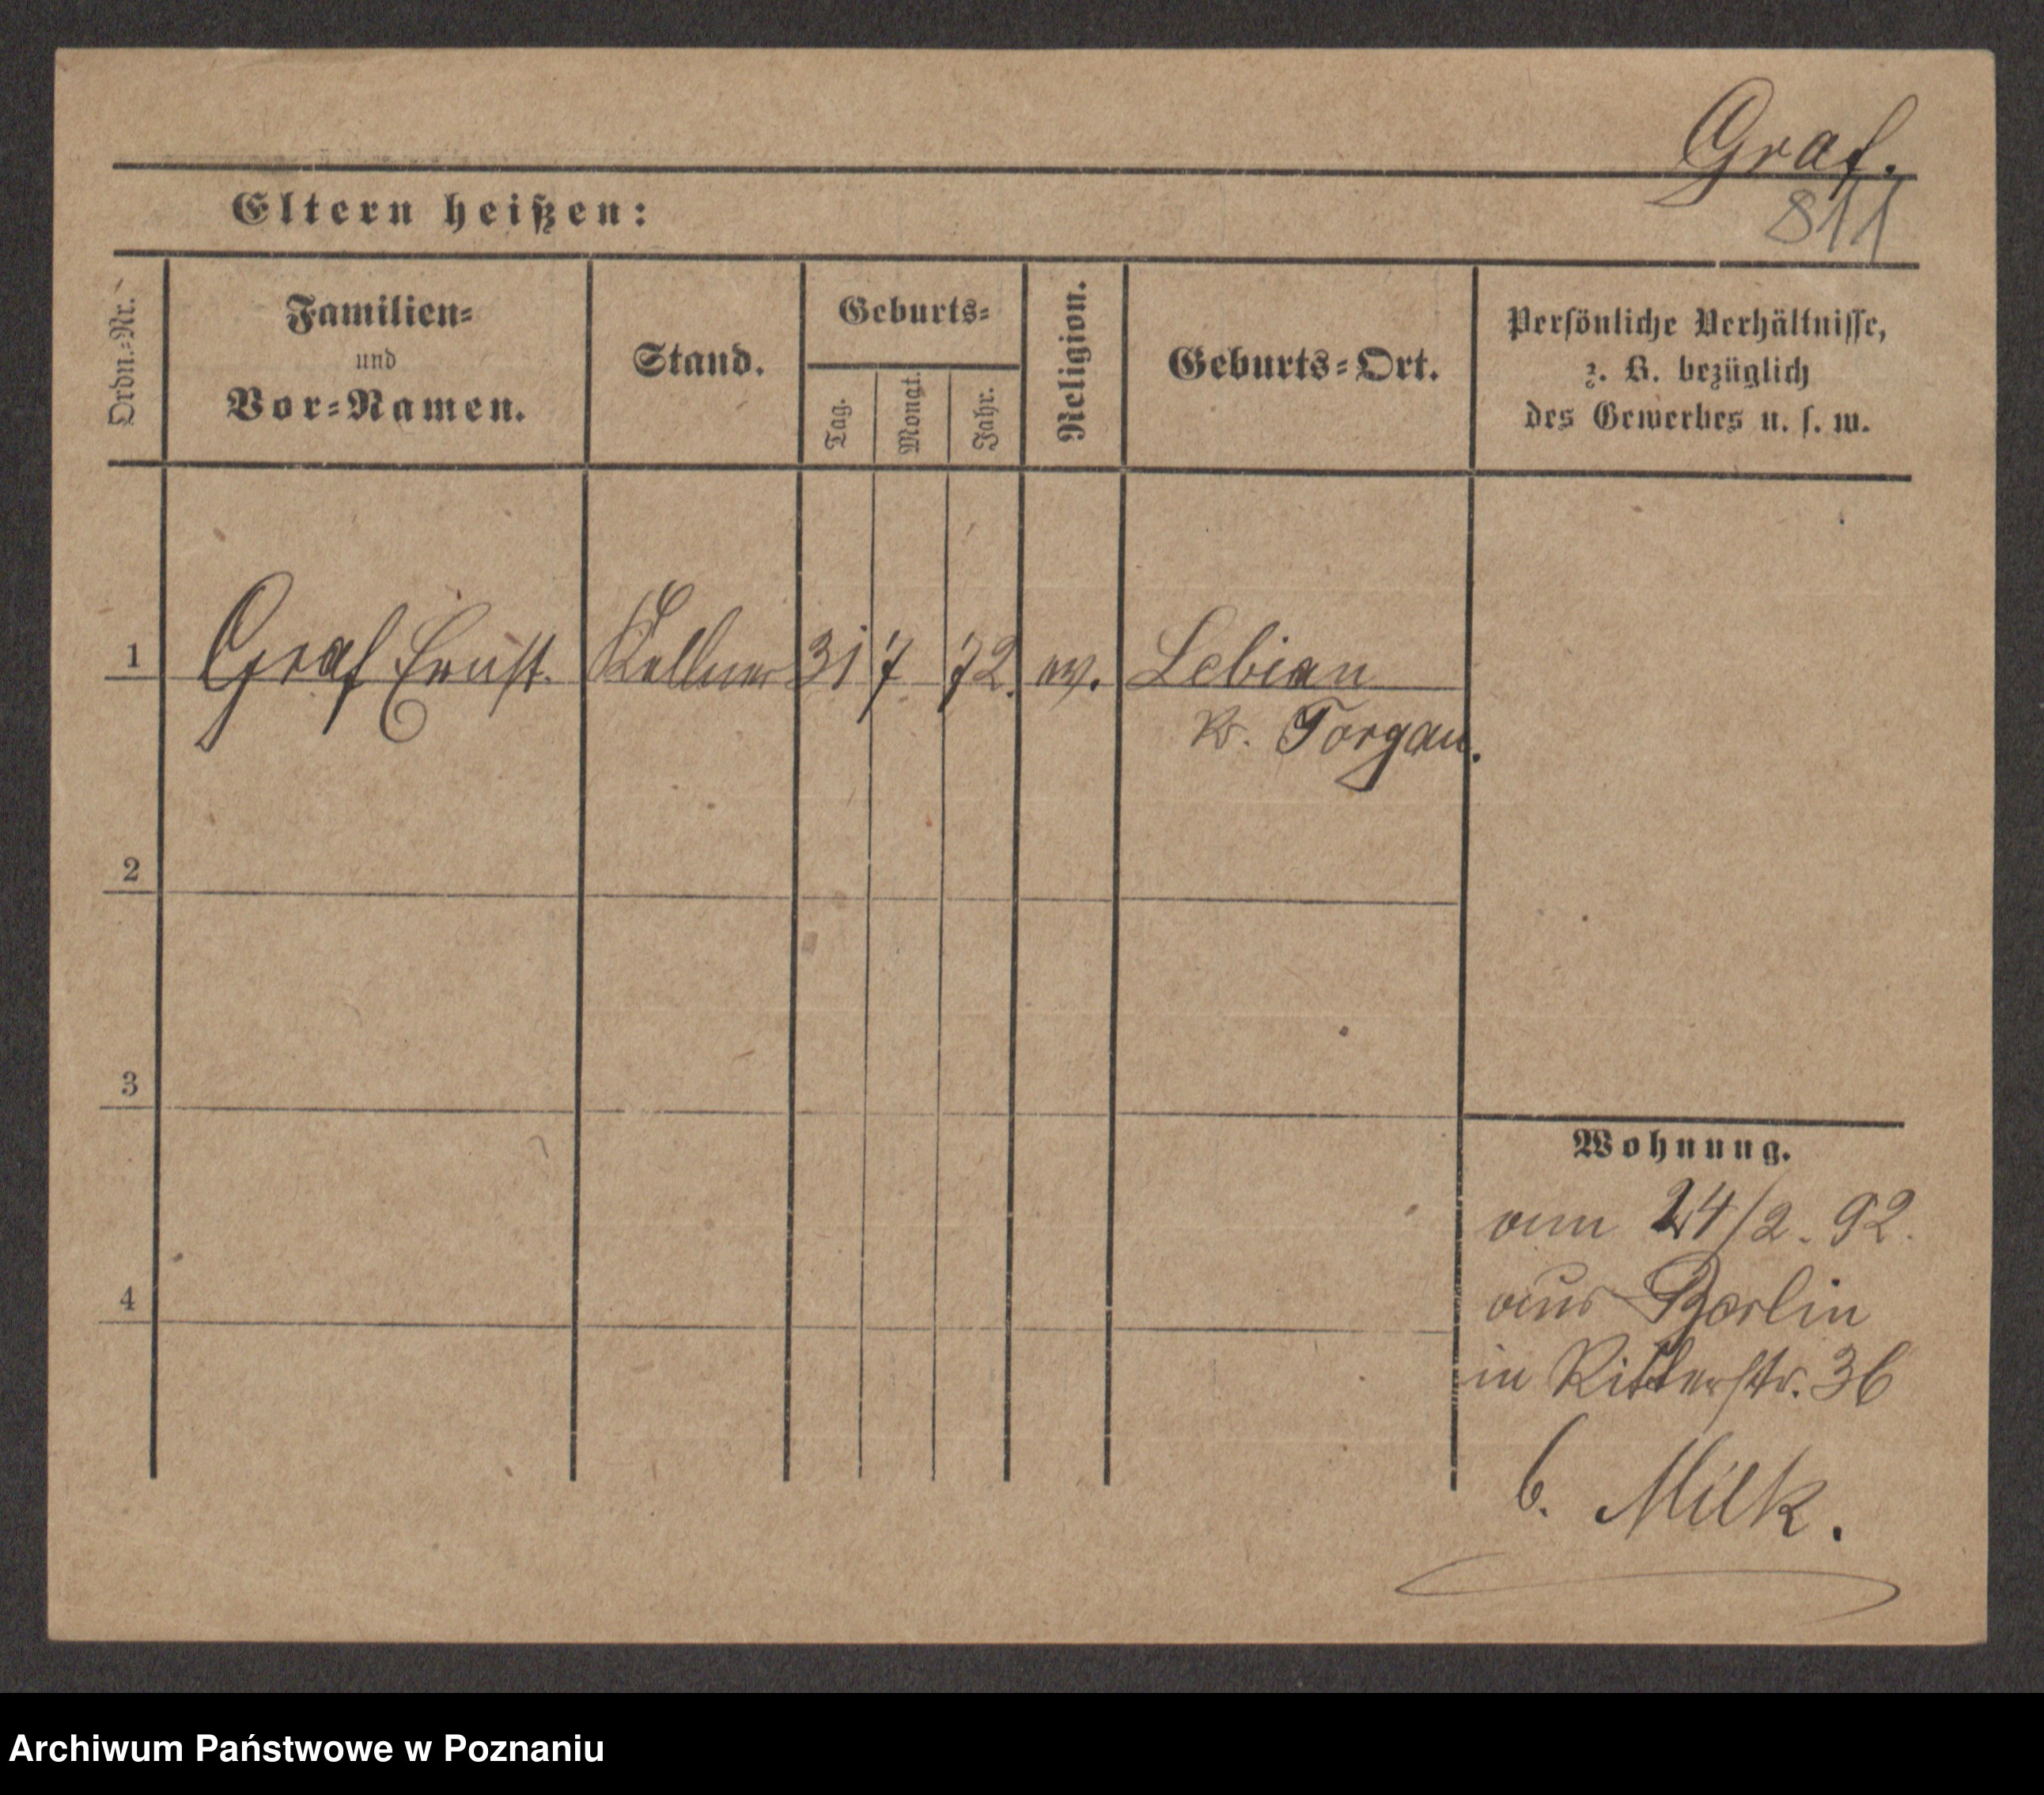 Graf.
811
Eltern heißen:
Ordn.-Nr.
Familien-
und
Vor-Namen.
Stand.
Geburts-
Tag.
Monat.
Jahr.
Religion.
Geburts-Ort.
Persönliche Verhältnisse,
z. B. bezüglich
des Gewerbes u. s. w.
1 Graf Ernst. Kellner 31 7 72. ev. Lebien
Kr. Torgau.
2
3
4
Wohnung.
am 24/2. 92.
aus Berlin
in Ritterstr. 36
b. Milk.
Archiwum Państwowe w Poznaniu